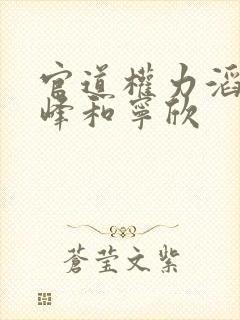 官道權力滔
峰和寧欣
蒼莹文紫